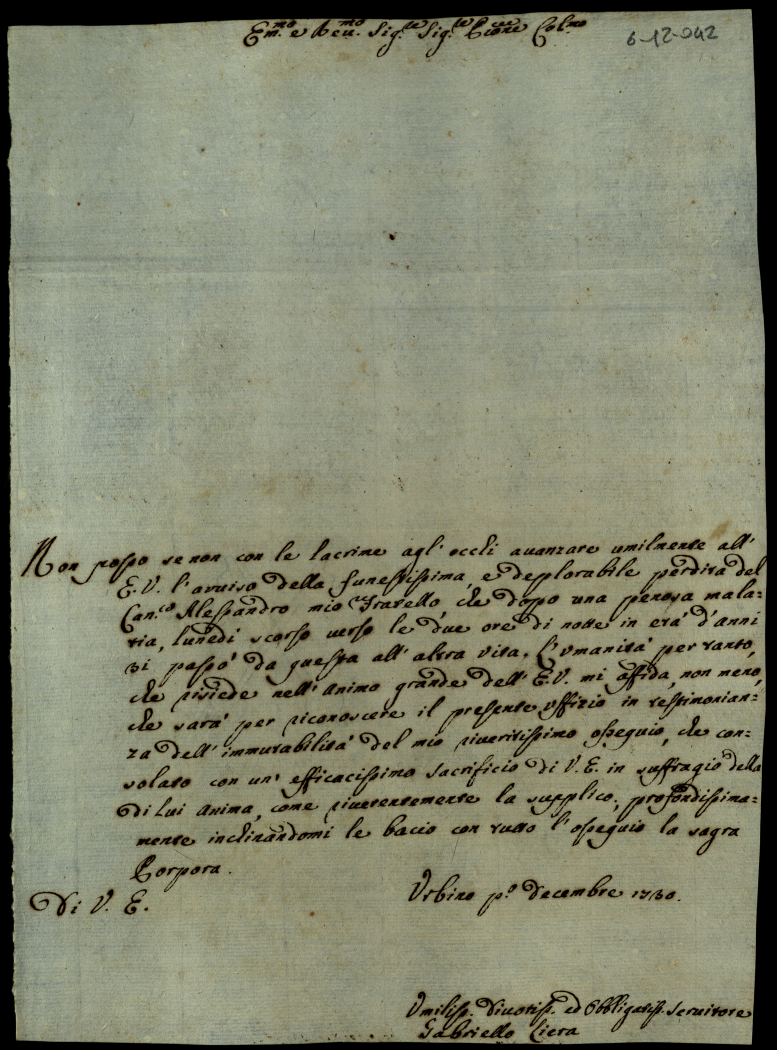 Em.mo e Reu.mo Sig.re Sig.re P.rone Col.mo
6-12-042
Non posso se non con le lacrime agl' occhi auanzare umilmente all'
E. V. l'avuiso della funestissima, e deplorabile perdita del
Can.co Alessandro mio Fratello, che dopo una penosa mala=
tia, lunedì scorso verso le due ore di notte in età d'anni
31 passò da questa all' altra vita. L'umanità per tanto,
che risiede nell' Animo grande dell' E. V. mi affida, non meno,
che sarà per riconoscere il presente uffizio in testimonian=
za dell' immutabilità del mio riueritissimo ossequio, che con=
solato con un' efficacissimo sacrificio di V. E. in suffragio della
di Lui Anima, come riuerentemente la supplico; profondissima=
mente inchinandomi le bacio con tutto l'ossequio la sagra
Porpora.
Di V. E.
Urbino p.o Decembre 1730.
Umiliss. Diuotiss. ed Obbligatiss. Seruitore
Gabriello